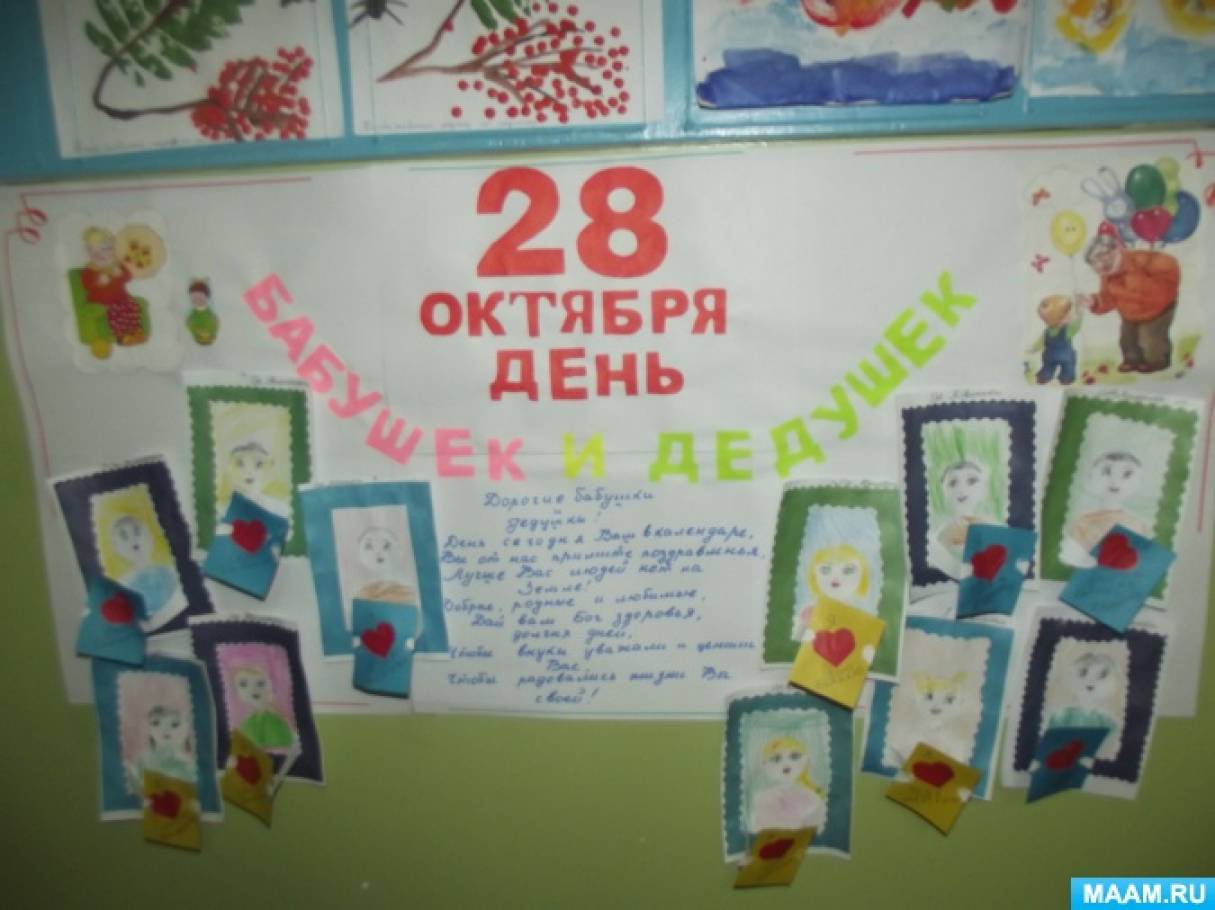 28
ОКТЯБРЯ
ДЕНЬ
БАБУШЕК И ДЕДУШЕК
Дорогие бабушки
дедушки!
День сегодня Ваш в календаре,
Вы от нас примите поздравленья,
Лучше Вас людей нет на
Земле!
Добрые, родные и любимые,
Дай вам Бог здоровья,
долгих дней,
Чтобы внуки уважали и ценили
Вас,
Чтобы радовались жизни Вы
своей!
MAAM.RU